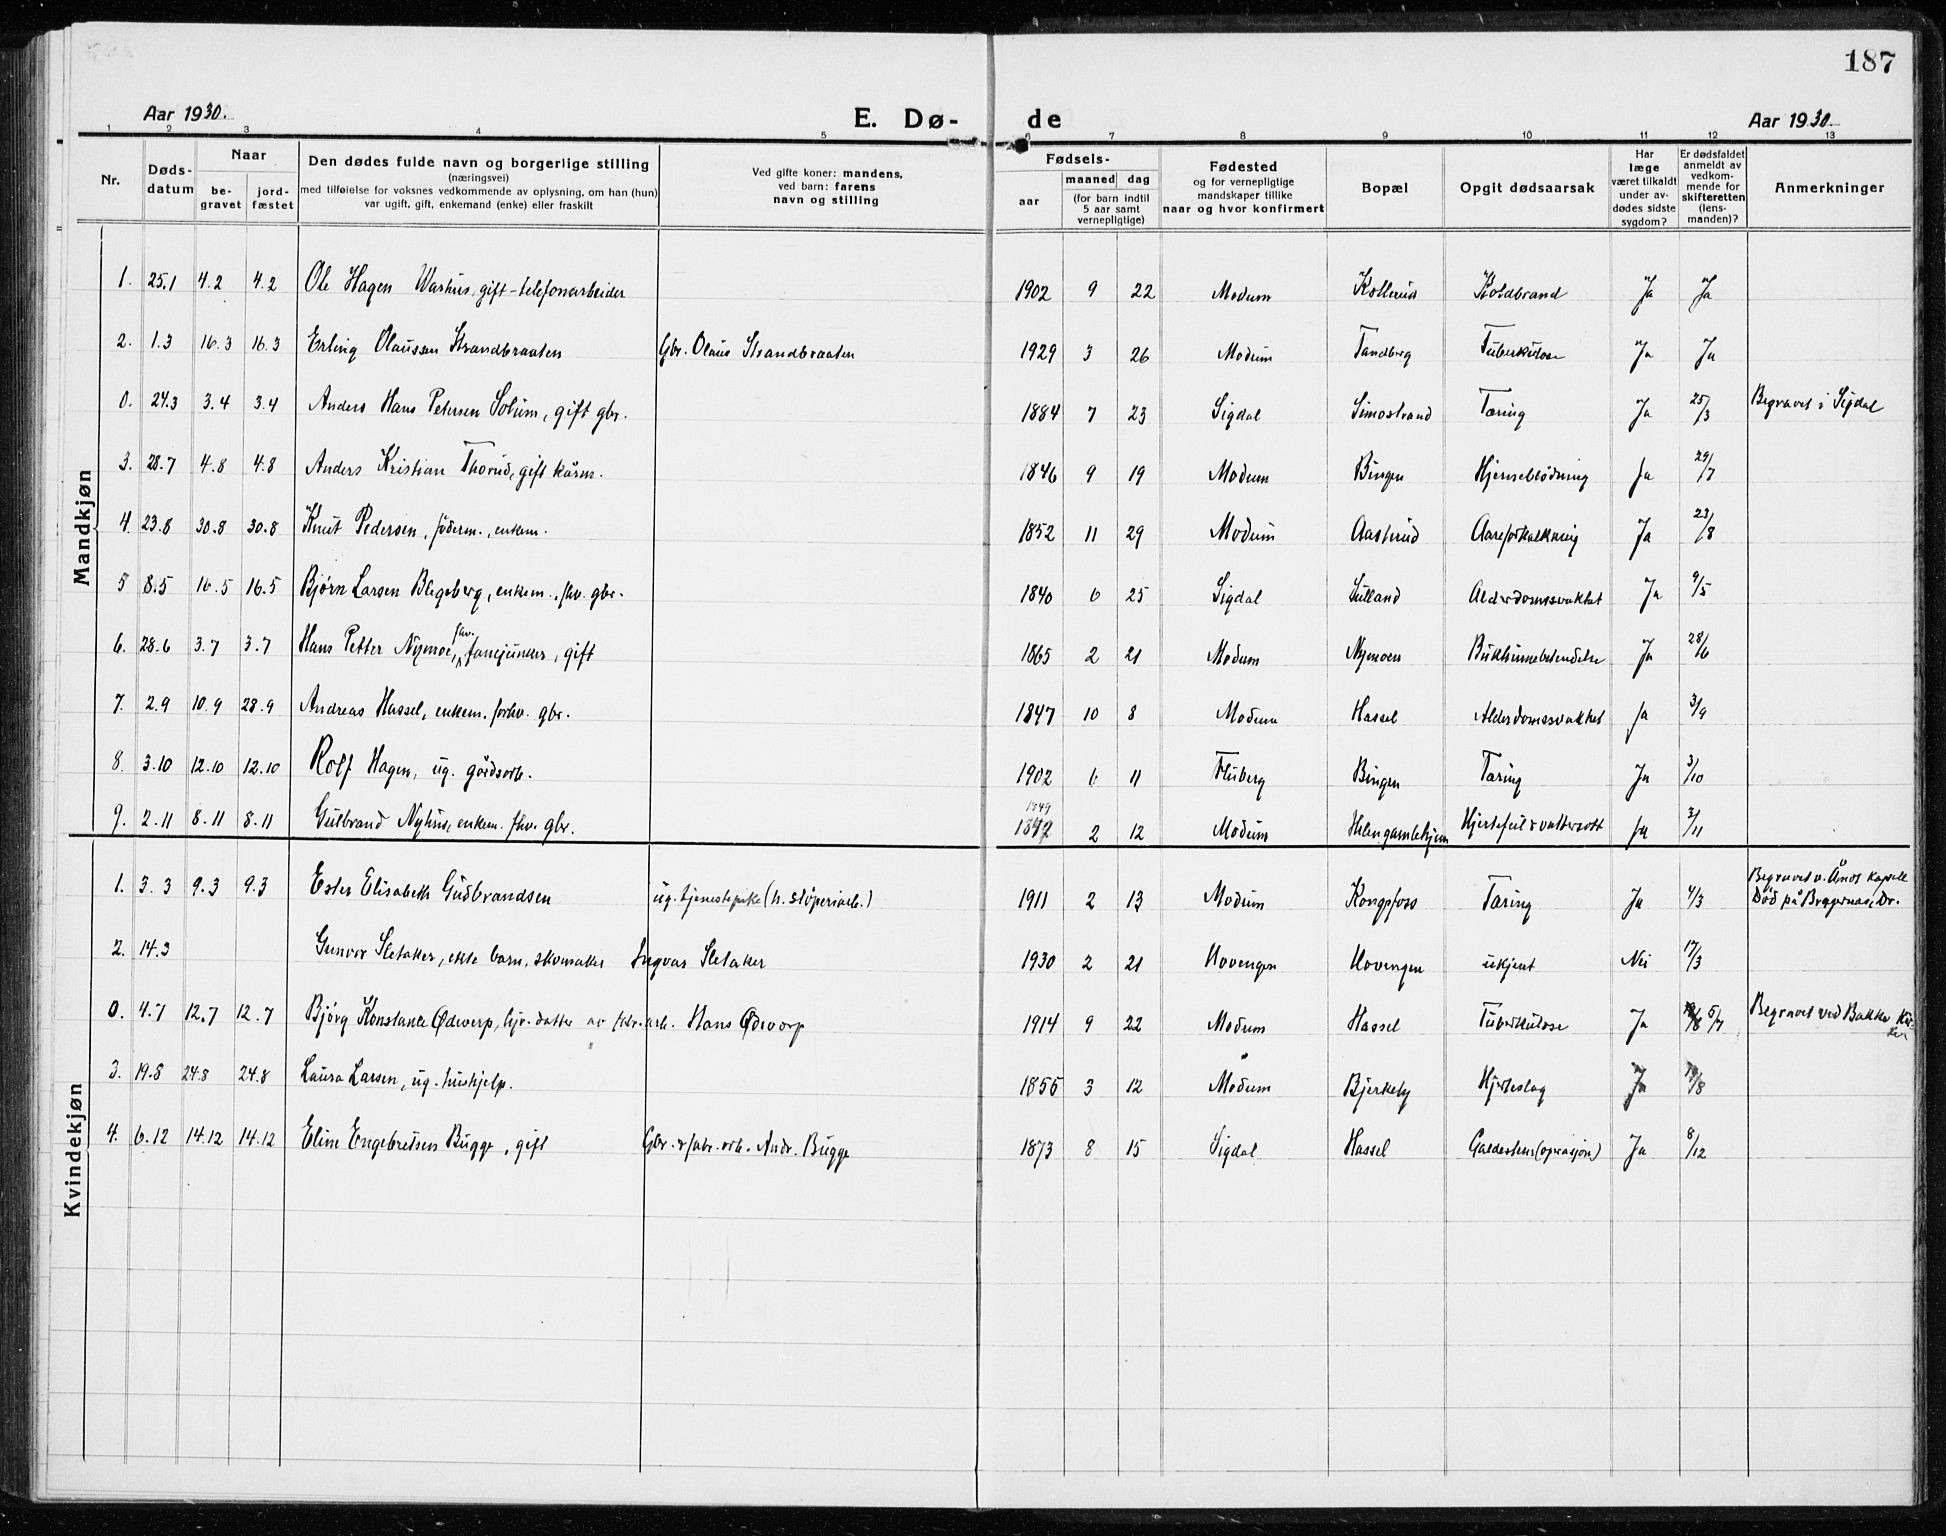 187
Aar 1930.
E. Dø-
de
Aar 1930.
1 2 3 4 5 6 7 8 9 10 11 12 13
Nr.
Døds-
datum
Naar
be-
gravet
jord-
fæstet
Den dødes fulde navn og borgerlige stilling
(næringsvei)
med tilføielse for voksnes vedkommende av oplysning, om han (hun)
var ugift, gift, enkemand (enke) eller fraskilt
Ved gifte koner: mandens,
ved barn: farens
navn og stilling
Fødsels-
aar
maaned
dag
(for barn indtil
5 aar samt
vernepligtige)
Fødested
og for vernepligtige
mandskaper tillike
naar og hvor konfirmert
Bopæl
Opgit dødsaarsak
Har
læge
været tilkaldt
under av-
dødes sidste
sygdom?
Er dødsfaldet
anmeldt av
vedkom-
mende for
skifteretten
(lens-
manden)?
Anmerkninger
Mandkjøn
1. 25.1 4.2 4.2 Ole Hagen Warhus, gift - telefonarbeider 1902 9 22 Modum Kollerud Koldbrand Ja Ja
2. 1.3 16.3 16.3 Erling Olaussen Strandbraaten Gbr. Olaus Strandbraaten 1929 3 26 Modum Tandberg Tuberkulose Ja Ja
0. 24.3 3.4 3.4 Anders Hans Petersen Solum, gift gbr. 1884 7 23 Sigdal Simostrand Tæring Ja 25/3 Begravet i Sigdal
3. 28.7 4.8 4.8 Anders Kristian Thorud, gift kårm. 1846 9 19 Modum Bingen Hjerneblödning Ja 29/7
4. 23.8 30.8 30.8 Knut Pedersen, föderm., enkem. 1852 11 29 Modum Aasterud Aareforkalkning Ja 23/8
5 8.5 16.5 16.5 Bjørn Larsen Blegeberg, enkem., fhv. gbr. 1840 6 25 Sigdal Sulland Alderdomssvakhet Ja 9/5
6. 28.6 3.7 3.7 Hans Petter Nymoe, fhv. fanejunker, gift 1865 2 21 Modum Nymoen Bukhinnebetendelse Ja 28/6
7. 2.9 10.9 28.9 Andreas Hassel, enkem. forhv. gbr. 1847 10 8 Modum Hassel Alderdomssvakhet Ja 3/9
8. 3.10 12.10 12.10 Rolf Hagen, ug. gårdsarb. 1902 6 11 Fluberg Bingen Tæring Ja 3/10
9. 2.11 8.11 8.11 Gulbrand Nyhus, enkem. fhv. gbr. 1849 2 12 Modum gamlehjem Hjertefeil & vattersott Ja 3/11
Kvindekjøn
1. 3.3 9.3 9.3 Ester Elisabeth Gudbrandsen ug. tjenestepike (h. støperiarb.) 1911 2 13 Modum Kongsfoss Tæring Ja 4/3 Begravet v. Åmot kapell
Död på Bragernæs, Dr.
2. 14.3 Gunvor Sletaker, ekte barn, skomaker Ingvar Sletaker 1930 2 21 Hovengen Hovengen ukjent Nei 17/3
0. 4.7 12.7 12.7 Bjørg Konstanse Ødeverp, hjv. datter av fabr.arb. Hans Ødevorp 1914 9 22 Modum Hassel Tuberkulose Ja 5/7 Begravet ved Bakke Kir-
ken
3. 19.8 24.8 24.8 Laura Larsen, ug. hushjelp. 1855 3 12 Modum Bjerkeby Hjerteslag Ja 19/8
4. 6.12 14.12 14.12 Eline Engebretsen Bugge, gift Gbr. & fabr. arb. Andr. Bugge 1873 8 15 Sigdal Hassel Galdesten (oprasjon) Ja 8/12